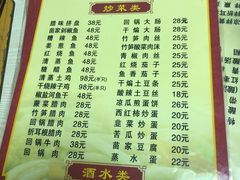 炒菜类
腊味拼盘 38元
苗家剁椒鱼 48元
酸辣鱼 48元
姜煎鱼 48元
红烧鱼 48元
清蒸鱼 48元
糖醋鱼 48元
清蒸土鸡 98元(半只)
干烧辣子鸡 98元(半只)
椒盐河鱼干 48元
蕨菜腊肉 28元
竹笋腊肉 28元
折耳根腊肉 28元
回锅牛肉 38元
回锅肉 28元
回锅大肠 28元
干煸大肠 28元
竹笋酸菜肉沫 20元
青椒肉丝 25元
红烧茄子 25元
鱼香茄子 25元
干煸土豆条
酸辣土豆丝
凉瓜煎蛋 26元
西红柿炒蛋 26元
韭菜炒蛋 20元
苦瓜炒蛋 20元
家常豆腐 22元
蒸水蛋 22元
酒水类